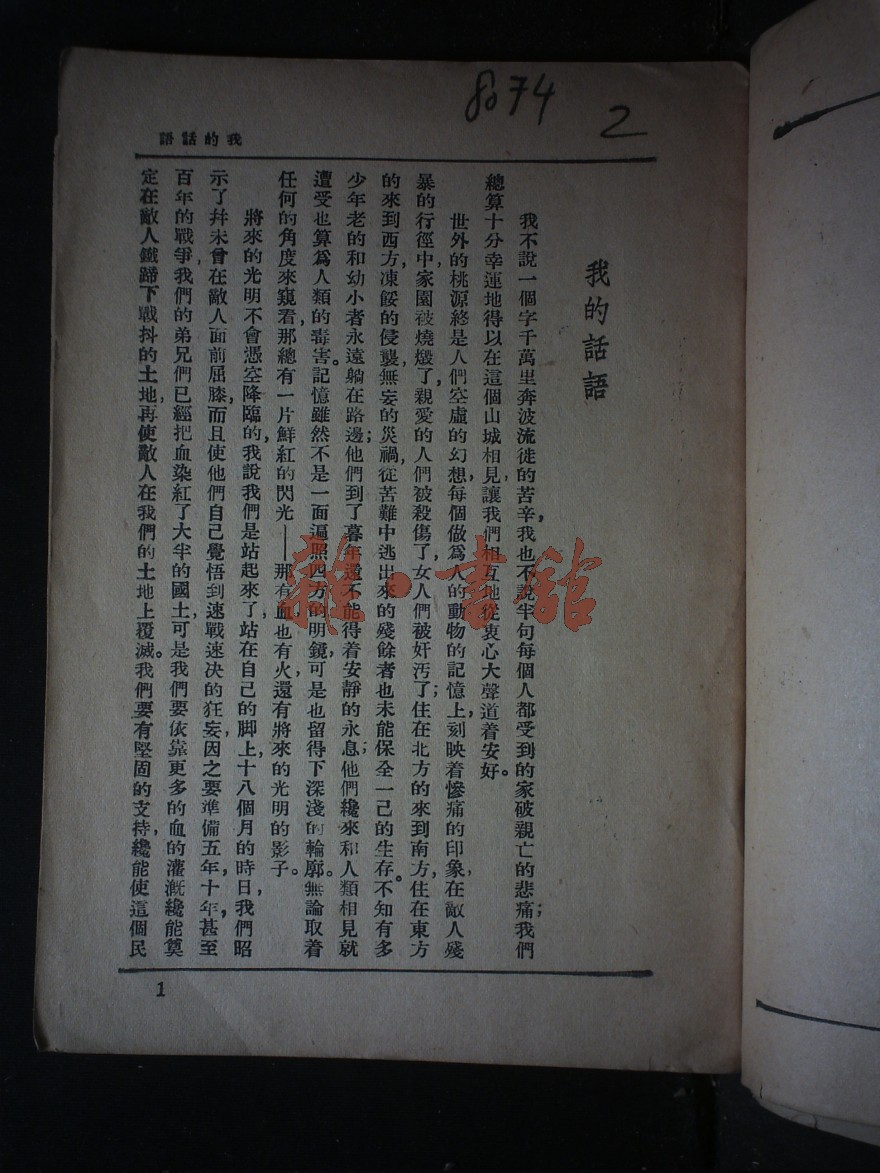 8074
2
我的話語
我的話語
我不說一個字千萬里奔波流徙的苦辛，我也不說半句每個人都受到的家破親亡的悲痛；我們
總算十分幸運地得以在這個山城相見，讓我們相互地從衷心大聲道着安好。
世外的桃源終是人們空虛的幻想，每個做爲人的動物的記憶上，刻映着慘痛的印象，在敵人殘
暴的行徑中，家園被燒燬了，親愛的人們被殺傷了，女人們被奸汚了；住在北方的來到南方，住在東方
的來到西方，凍餒的侵襲，無妄的災禍，從苦難中逃出來的殘餘者也未能保全一己的生存。不知有多
少年老的和幼小者永遠躺在路邊；他們到了暮年還不能得着安靜的永息；他們纔來和人類相見就
遭受也算爲人類的毒害。記憶雖然不是一面遍照四方的明鏡，可是也留得下深淺的輪廓。無論取着
任何的角度來窺看，那總有一片鮮紅的閃光——那有血也有火，還有將來的光明的影子。
將來的光明不會憑空降臨的，我說我們是站起來了，站在自己的脚上，十八個月的時日，我們昭
示了幷未曾在敵人面前屈膝，而且使他們自己覺悟到速戰速决的狂妄，因之要準備五年，十年，甚至
百年的戰爭，我們的弟兄們已經把血染紅了大半的國土，可是我們要依靠更多的血的灌漑纔能奠
定在敵人鐵蹄下戰抖的土地，再使敵人在我們的土地上覆滅。我們要有堅固的支持，纔能使這個民
1
雜·書館